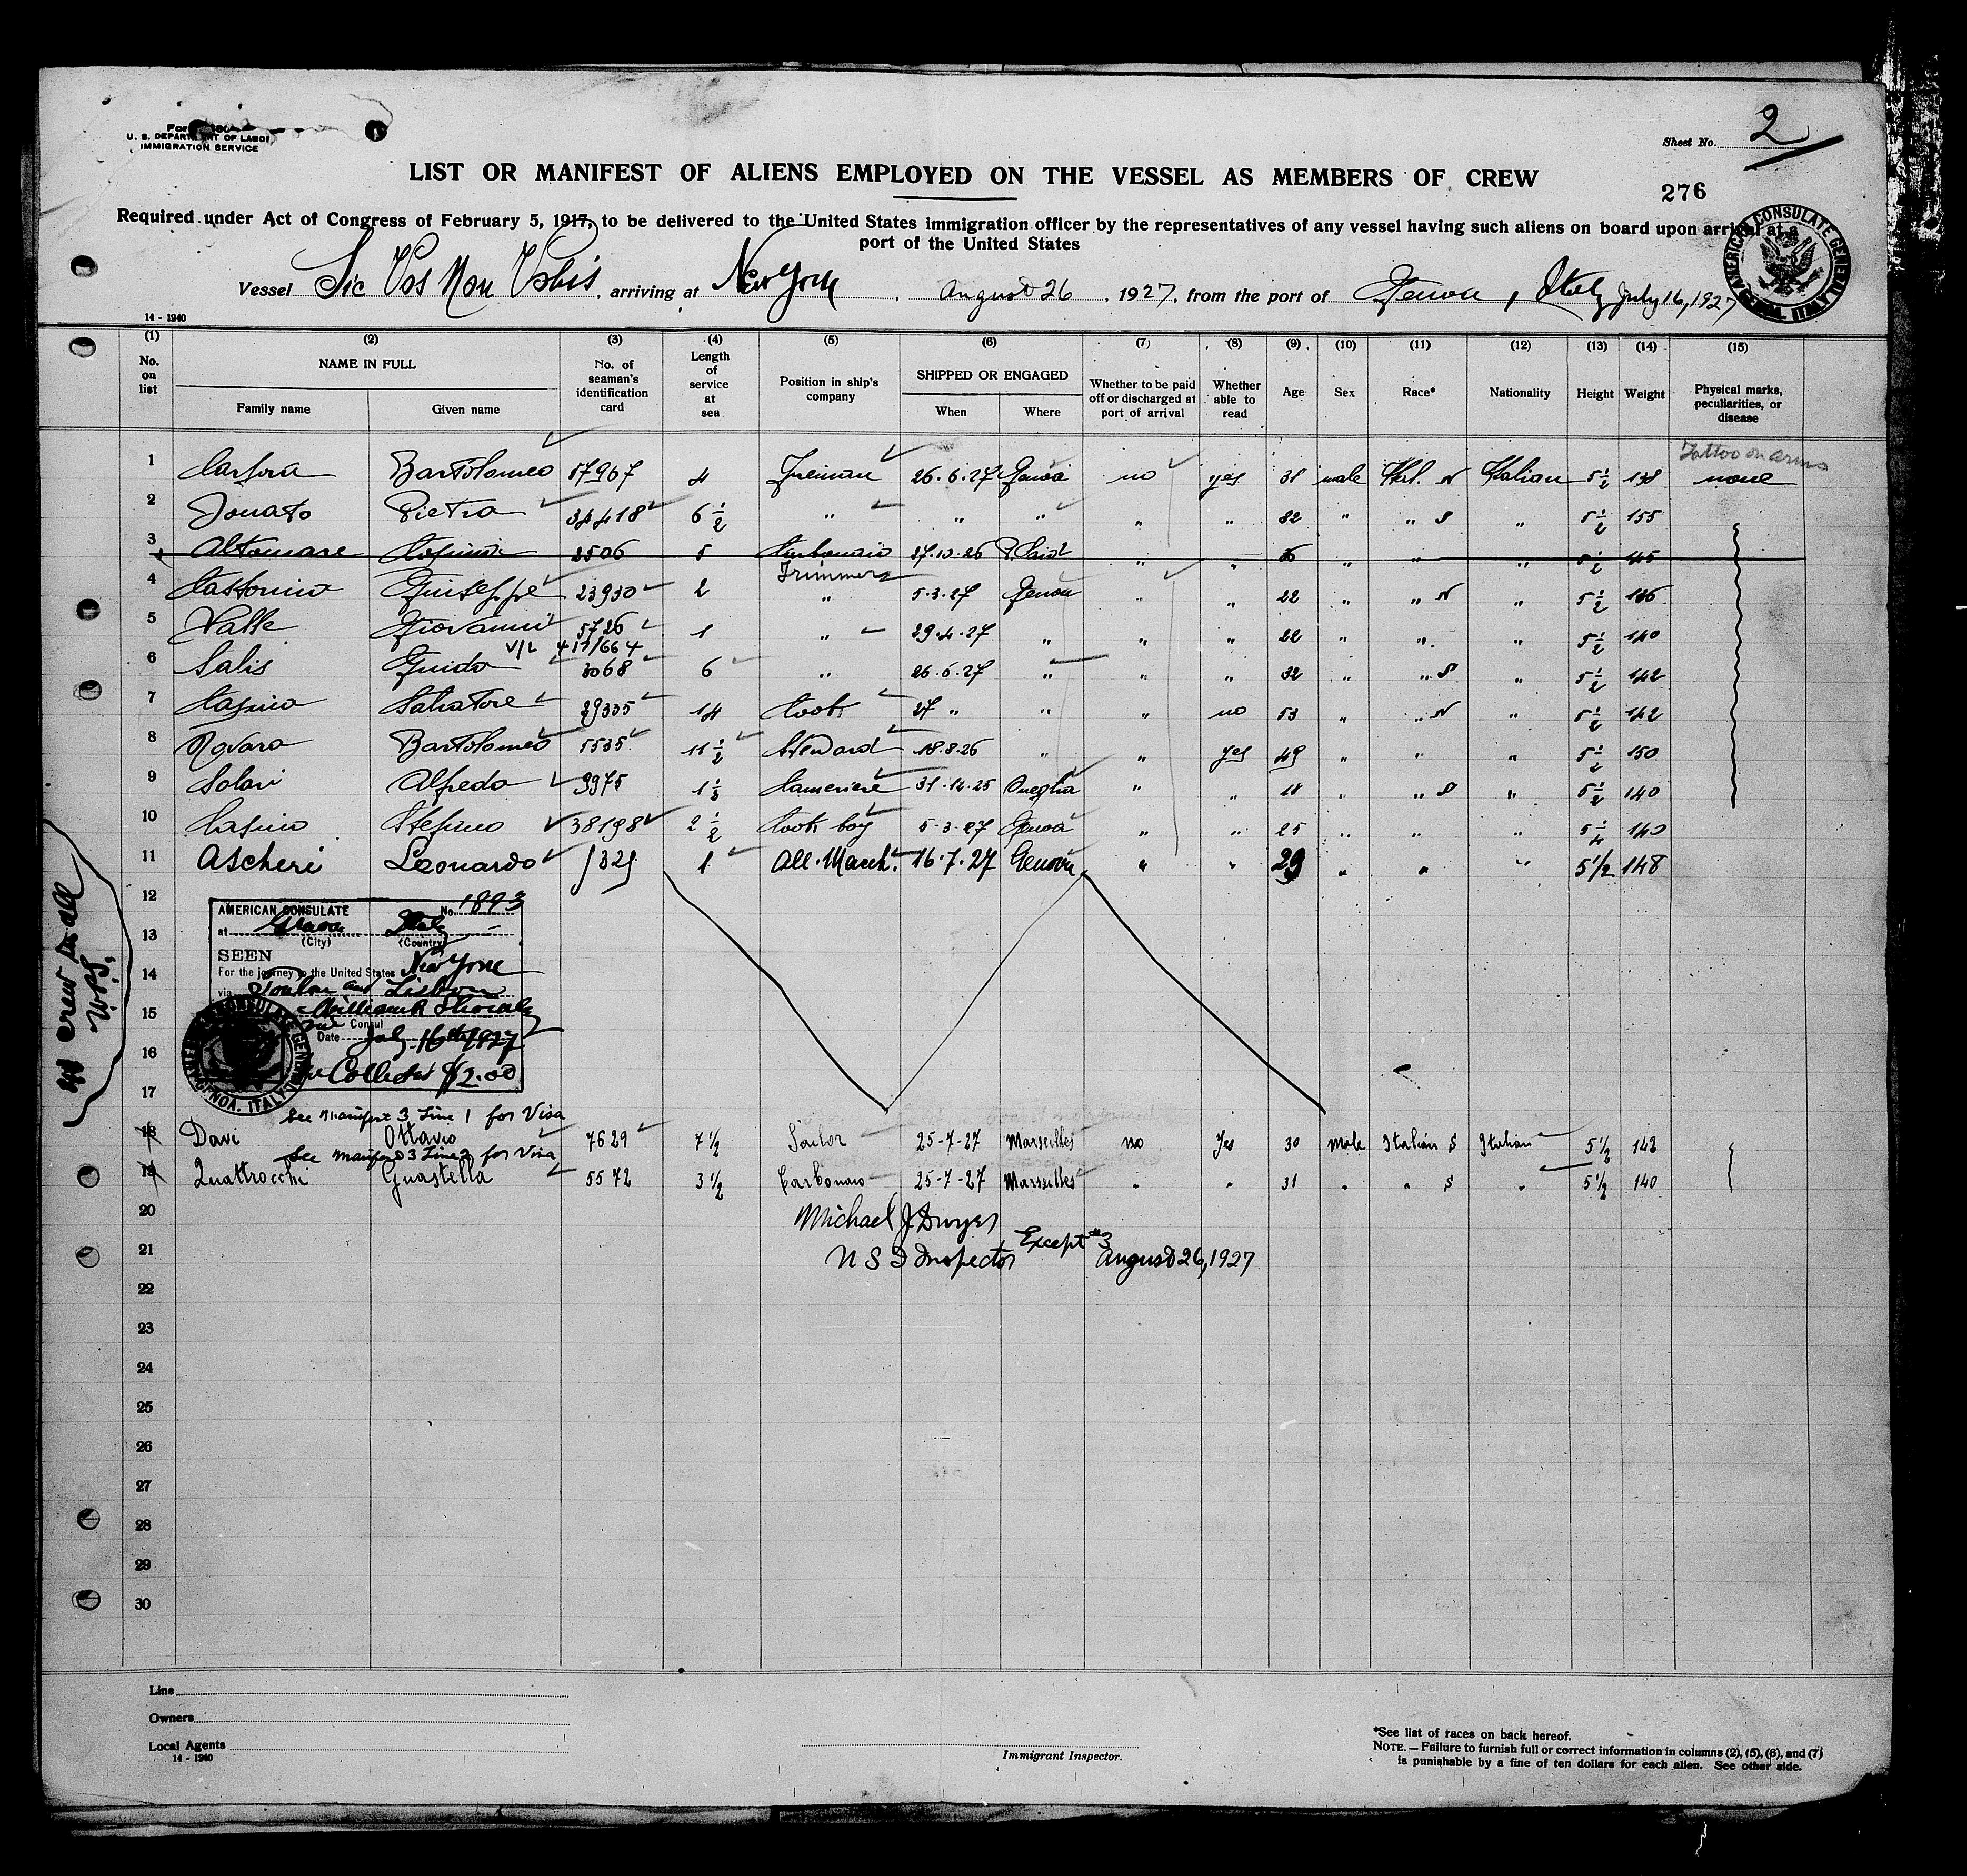 U. S. DEPARTMENT OF LABOR
IMMIGRATION SERVICE
Sheet No. 2
LIST OR MANIFEST OF ALIENS EMPLOYED ON THE VESSEL AS MEMBERS OF CREW
276
Required under Act of Congress of February 5, 1917, to be delivered to the United States immigration officer by the representatives of any vessel having such aliens on board upon arrival at a
port of the United States
AMERICAN CONSULATE GENERAL GENOA, ITALY
Vessel Sic Vos Non Vobis, arriving at New York, August 26, 1927, from the port of Genoa, Italy July 16, 1927
14 - 1240
(1) (2) (3) (4) (5) (6) (7) (8) (9) (10) (11) (12) (13) (14) (15)
No. on list
NAME IN FULL
Family name
Given name
No. of seaman's identification card
Length of service at sea
Position in ship's company
SHIPPED OR ENGAGED
When
Where
Whether to be paid off or discharged at port of arrival
Whether able to read
Age
Sex
Race*
Nationality
Height
Weight
Physical marks, peculiarities, or disease
Tattoo on arms
1 Bartolomeo 57967 4 Fireman 26.6.27 Genoa no yes 31 male Ital. N Italian 5 1/2 138 none
2 Donato Pietro 34418 6 1/2 " " " " " 32 " " S " 5 1/2 155
3 Altomare Cosimo 2506 5 Carbonaio 27.10.26 P. Said " " " " " 5 1/2 145
Trimmer
4 Giuseppe 23930 2 " 5.3.27 Genoa " " 22 " " N " 5 1/2 166
5 Valle Giovanni 5726 1 " 29.4.27 " " " 22 " " " 5 1/2 140
V/L 417/664
6 Salis Guido 3068 6 " 26.6.27 " " " 32 " " S " 5 1/2 142
7 Salvatore 29335 14 Cook 27 " " " no 53 " " N " 5 1/2 142
8 Novaro Bartolomeo 5535 11 1/2 Steward 18.8.26 " " yes 49 " " " 5 1/2 150
9 Solari Alfredo 9975 1 1/2 Cameriere 31.12.25 Oneglia " " 18 " " S " 5 1/2 140
10 Stefano 38198 2 1/2 Cook boy 5-3-27 Genoa " " 25 " " " 5 1/4 140
11 Ascheri Leonardo 1 All. Macch. 16.7.27 Genova " " 29 " " " 5 1/2 148
12
13
14
15
16
17
AMERICAN CONSULATE No. 1893
at Genoa Italy
(City) (Country)
SEEN
For the journey to the United States New York
via Toulon and Lisbon
Consul
Date July 16th 1927
Collected $2.00
AMERICAN CONSULATE GENERAL GENOA, ITALY
crew in all
See manifest 3 Line 1 for Visa
18 Davi Ottavio 7629 7 1/2 Sailor 25-7-27 Marseilles no Yes 30 Male Italian S Italian 5 1/2 143
See manifest 3 Line 2 for Visa
19 Quattrocchi Guastella 5572 3 1/2 Carbonaio 25-7-27 Marseilles " " 31 " " S " 5 1/2 140
20 Michael J Dwyer
Except #3
21 U S I Inspector August 26, 1927
22
23
24
25
26
27
28
29
30
Line
Owners
Local Agents
14 - 1240
Immigrant Inspector.
*See list of races on back hereof.
NOTE. — Failure to furnish full or correct information in columns (2), (5), (6), and (7)
is punishable by a fine of ten dollars for each alien. See other side.